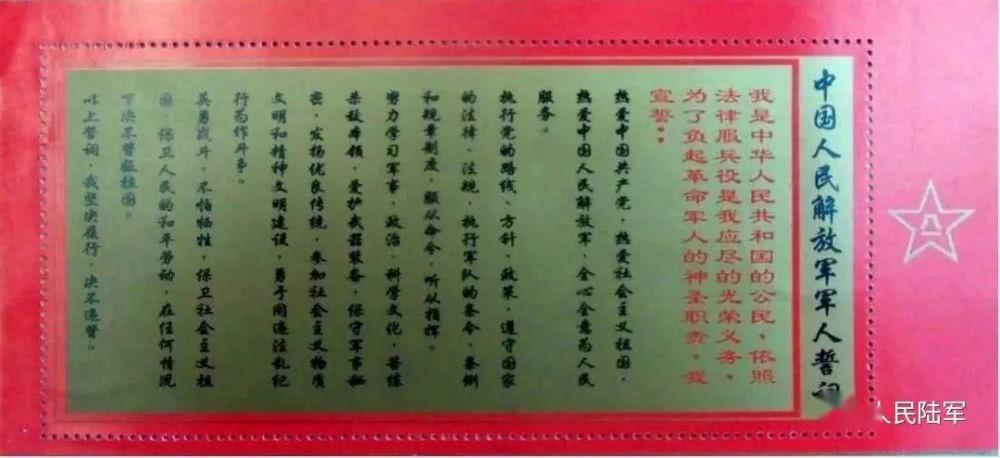 中国人民解放军军人誓词
我是中华人民共和国的公民，依照
法律服兵役是我应尽的光荣义务。
为了负起革命军人的神圣职责，我
宣誓：
热爱中国共产党，热爱社会主义祖国，
热爱中国人民解放军，全心全意为人民
服务。
执行党的路线、方针、政策，遵守国家
的法律、法规，执行军队的条令、条例
和规章制度，服从命令，听从指挥。
努力学习军事、政治、科学文化，苦练
杀敌本领，爱护武器装备，保守军事秘
密，发扬优良传统，参加社会主义物质
文明和精神文明建设，勇于同违法乱纪
行为作斗争。
英勇战斗，不怕牺牲，保卫社会主义祖
国，保卫人民的和平劳动，在任何情况
下决不背叛祖国。
以上誓词，我坚决履行，决不违背。
八一
人民陆军